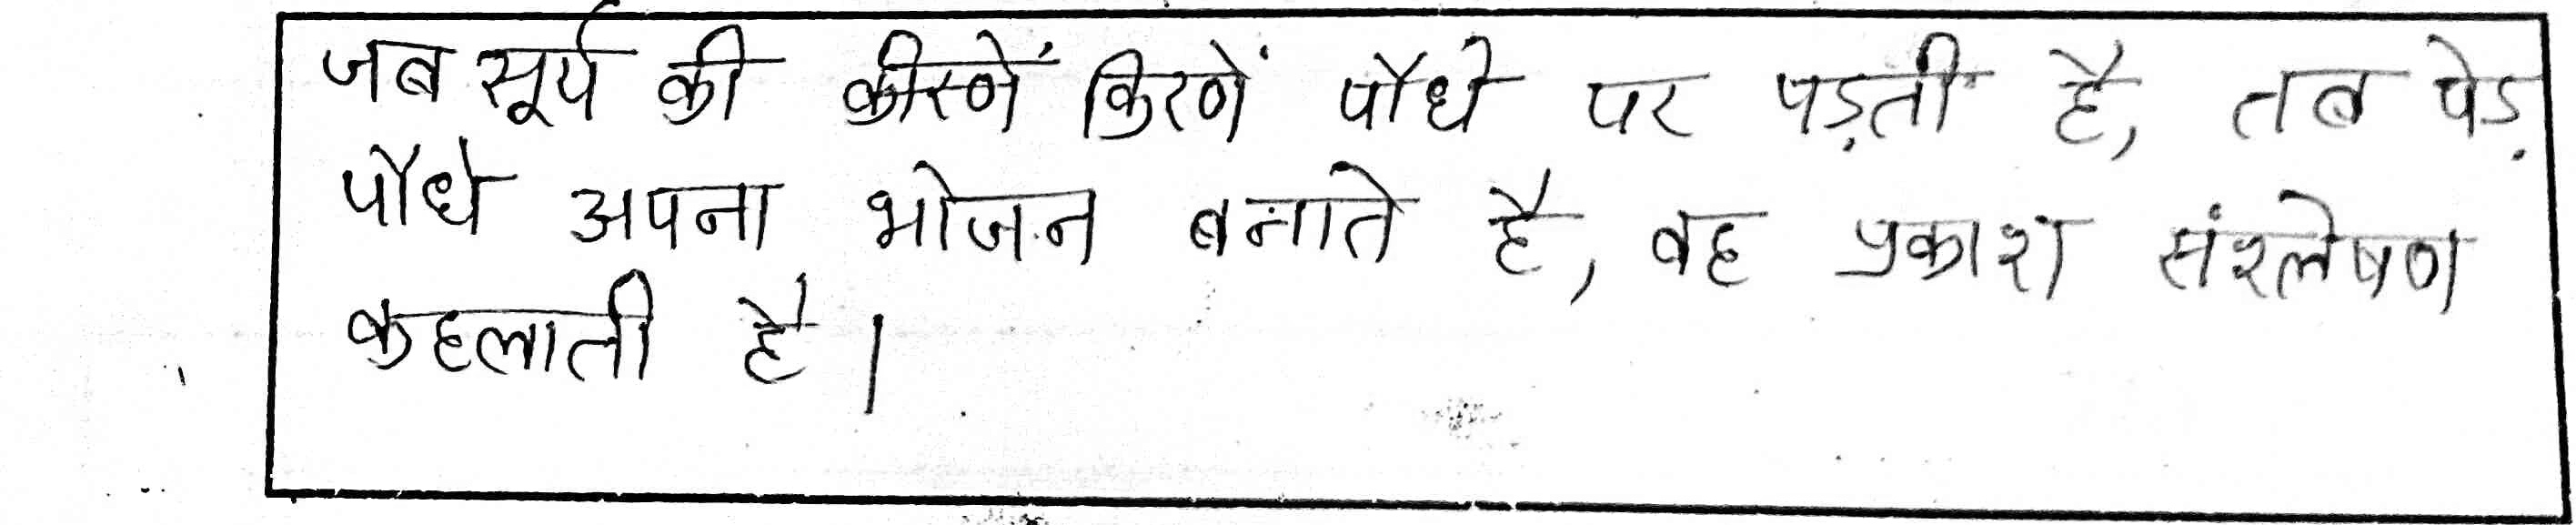 जब सूर्य की कीरणें किरणें पौधे पर पड़ती है, तब पेड़
पौधे अपना भोजन बनाते है, वह प्रकाश संश्लेषण
कहलाती है।